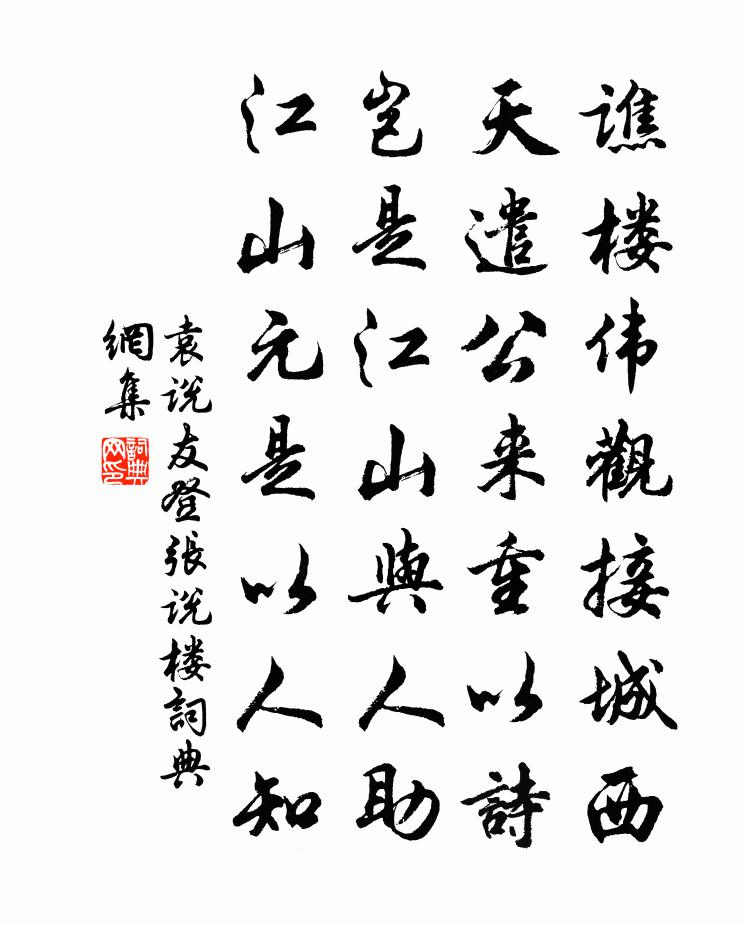 譙楼伟觀接城西
天遣公来重以詩
岂是江山與人助
江山元是以人知
袁说友登张说楼詞典
網集
詞典
网印